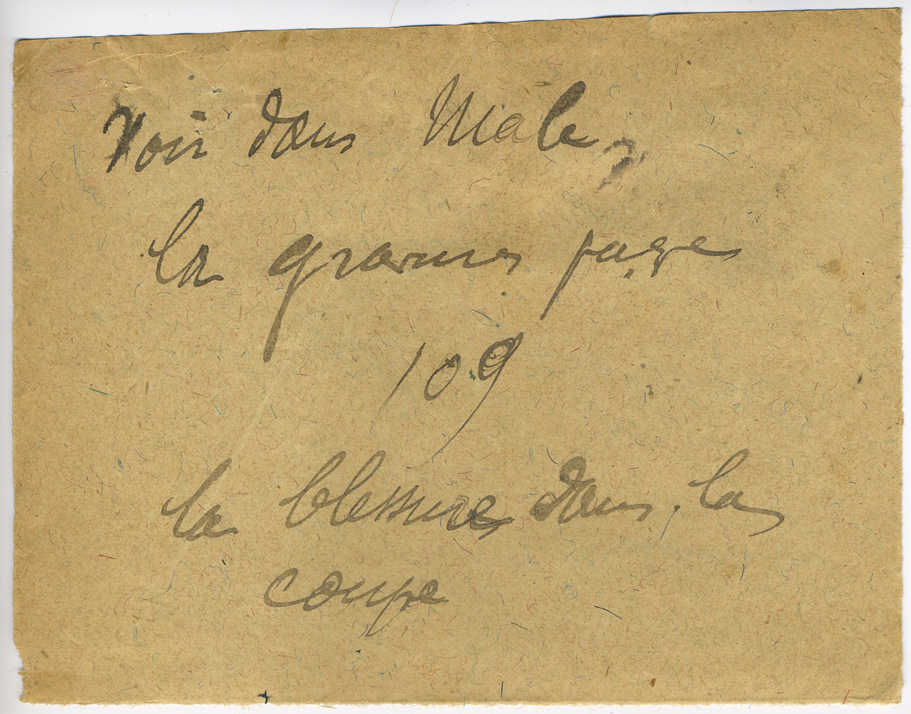 Voir dans Male,
la gravure page
109
la blessure dans la
coupe